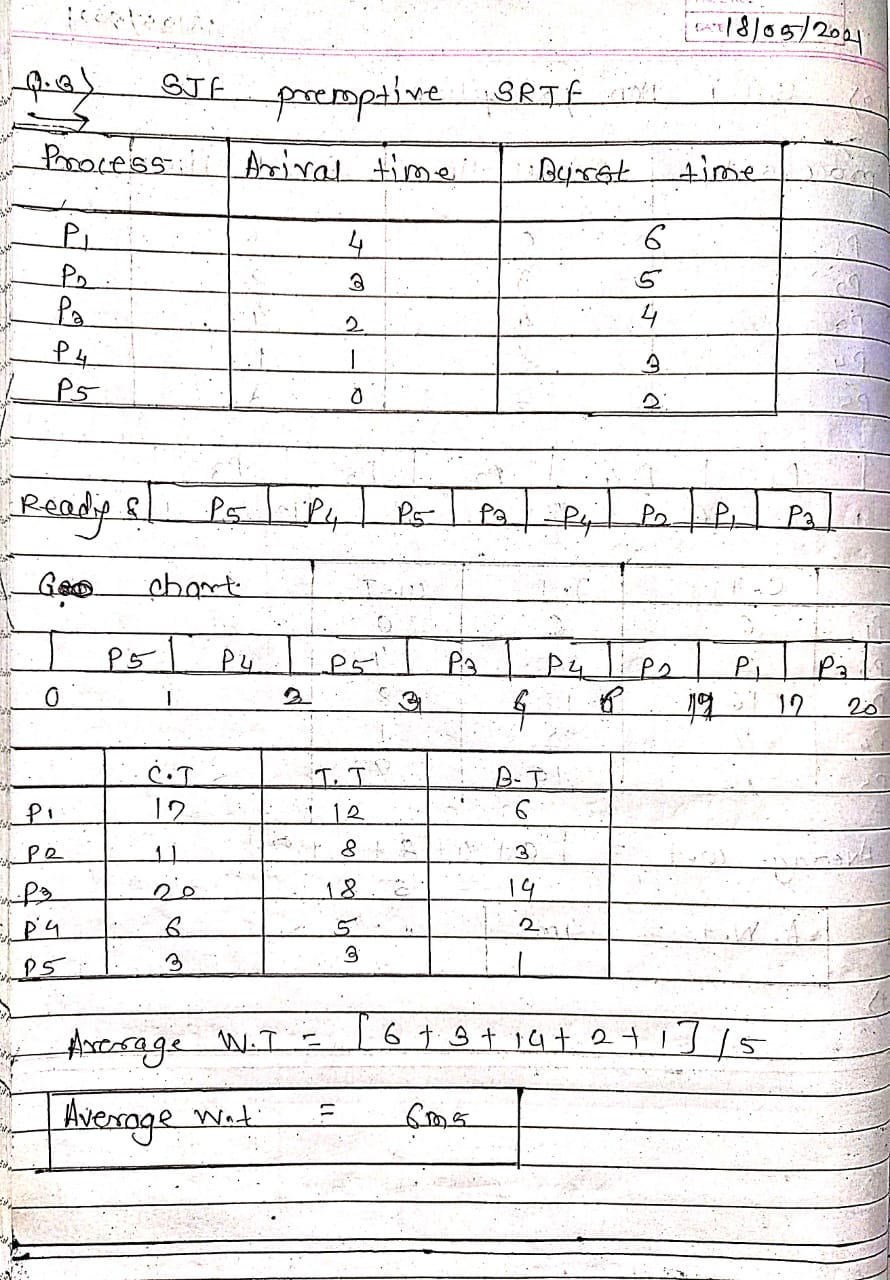 DATE 18/05/2021
Q.3) SJF premptive SRTF
Process Arival time Burst time
P1 4 6
P2 3 5
P3 2 4
P4 1 3
P5 0 2
Ready Q P5 P4 P5 P3 P4 P2 P1 P3
chart
P5 P4 P5 P3 P4 P2 P1 P3
0 1 2 3 17 20
C.T T.T B.T
P1 17 12 6
P2 11 8 3
P3 20 18 14
P4 6 5 2
P5 3 3 1
Average W.T = [6 + 3 + 14 + 2 + 1] / 5
Average W.t = 6ms